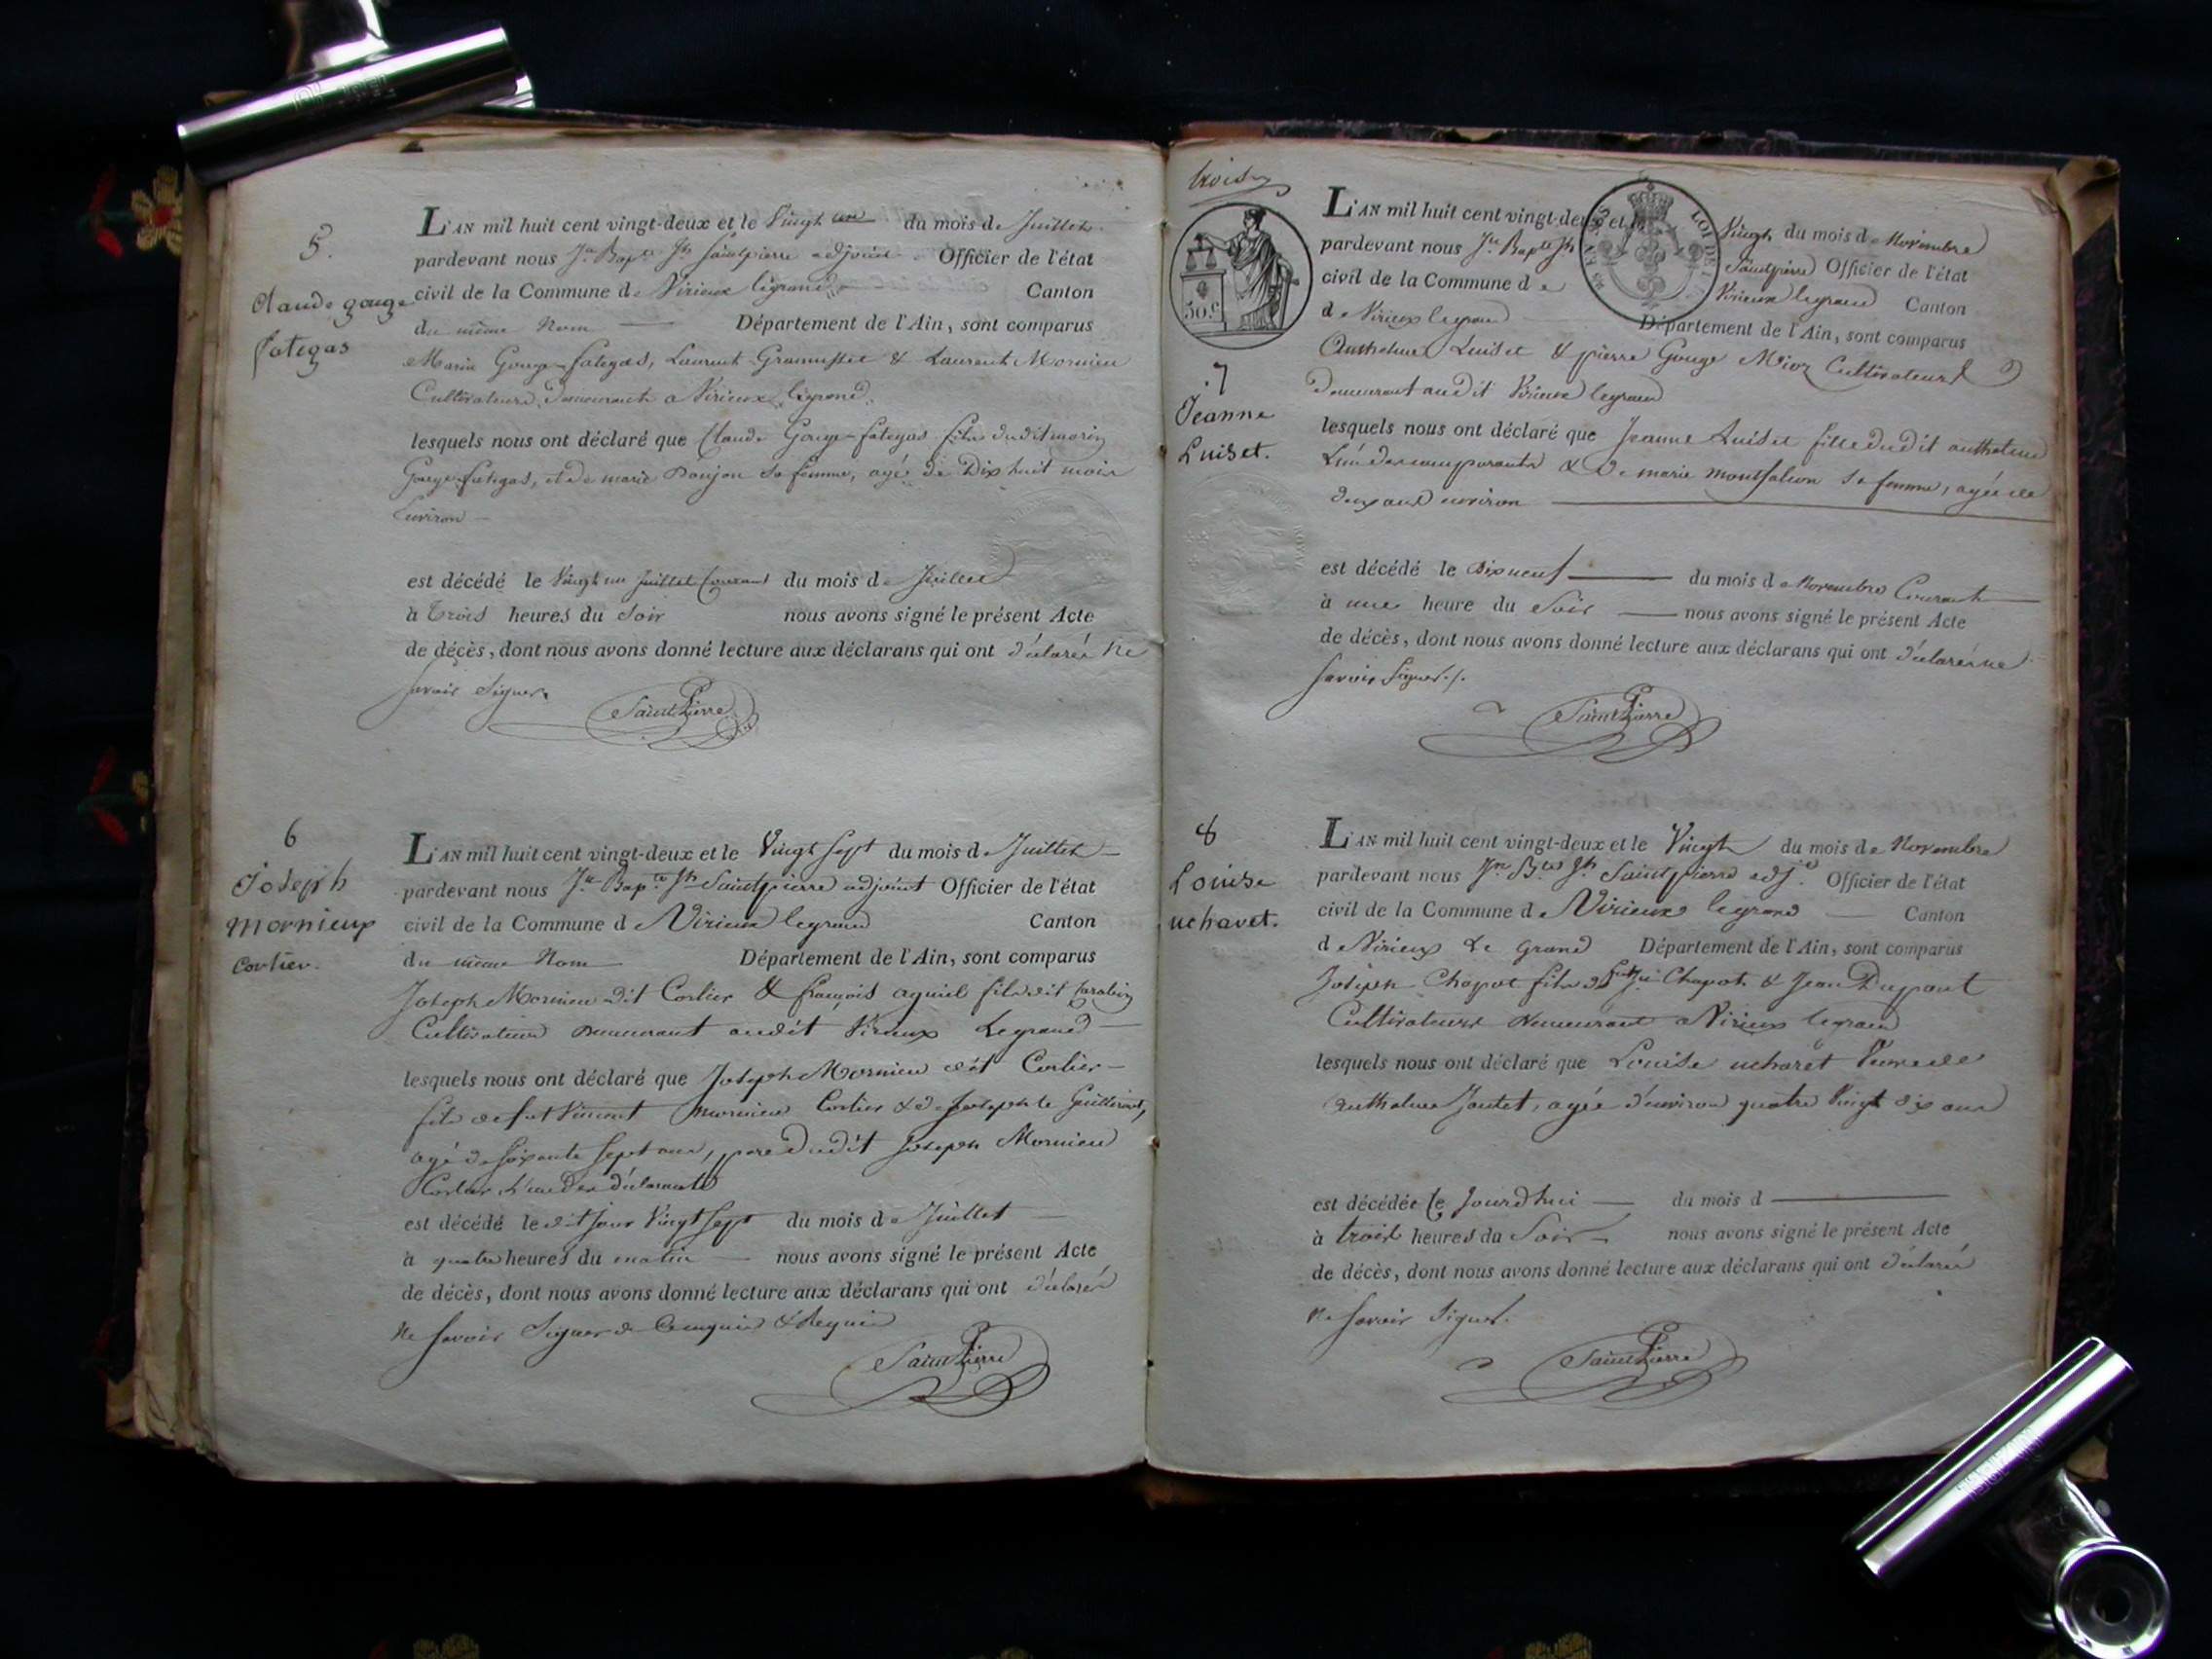 5.
Claude gouge
fategas
L'AN mil huit cent vingt-deux et le Vingt du mois de Juillet
pardevant nous Jn Bapte Jh Saintpierre adjoint Officier de l'état
civil de la Commune de Virieux legrand Canton
du même Nom Département de l'Ain, sont comparus
Marin Gouge-fategas, Laurent & Laurent Mornieu
Cultivateurs demeurant a Virieux legrand
lesquels nous ont déclaré que Claude Gouge-fategas fils dudit marin
Gouge-fategas, et de marie Donjon sa femme, agé de Dix huit mois
Environ
est décédé le Vingt un Juillet Courant du mois de Juillet
à trois heures du Soir nous avons signé le présent Acte
de décès, dont nous avons donné lecture aux déclarans qui ont déclarés Ne
Savoir Signer.
SaintPierre
6
Joseph
mornieux
corlier.
L'AN mil huit cent vingt-deux et le Vingt Sept du mois de Juillet
pardevant nous Jn Bapte Jh Saintpierre adjoint Officier de l'état
civil de la Commune de Virieux legrand Canton
du même Nom Département de l'Ain, sont comparus
Joseph Mornieu dit Corlier & françois fils dit
Cultivateurs Demeurant audit Virieux Legrand
lesquels nous ont déclaré que Joseph Mornieu dit Corlier
fils de fut Vincent mornieu Corlier & de
agé de Soixante Sept ans, pere dudit Joseph Mornieu
Corlier L'un des déclarants
est décédé le dit jour Vingt Sept du mois de Juillet
à quatre heures du matin nous avons signé le présent Acte
de décès, dont nous avons donné lecture aux déclarans qui ont déclarés
Ne Savoir Signer de Ce enquis & Requis
SaintPierre
trois
50 c
LOI DE
7
Jeanne
Luiset.
L'AN mil huit cent vingt-deux et le Vingt du mois de Novembre
pardevant nous Jn Bapte Jh Saintpierre Officier de l'état
civil de la Commune de Virieux legrand Canton
de Virieux legrand Département de l'Ain, sont comparus
Anthelme Luiset & pierre Gouge Cultivateurs
Demeurant audit Virieux legrand
lesquels nous ont déclaré que Jeanne Luiset fille dudit anthelme
L'un des comparants & De marie montfalcon sa femme, agée de
deux ans environ
est décédé le dix neuf du mois de Novembre Courant
à une heure du Soir nous avons signé le présent Acte
de décès, dont nous avons donné lecture aux déclarans qui ont déclarés ne
Savoir Signer./.
SaintPierre
8
Louise
uchavet.
L'AN mil huit cent vingt-deux et le Vingt du mois de Novembre
pardevant nous Jn Bte Jh Saintpierre adjt Officier de l'état
civil de la Commune de Virieux legrand Canton
de Virieux Le grand Département de l'Ain, sont comparus
Joseph Chapot fils de Chapot & Jean Dupont
Cultivateurs Demeurant a Virieux legrand
lesquels nous ont déclaré que Louise uchavet Veuve de
Anthelme Joutet, agée d'environ quatre Vingt dix ans
est décédée le Jourdhui du mois d
à trois heures du Soir nous avons signé le présent Acte
de décès, dont nous avons donné lecture aux déclarans qui ont déclarés
Ne Savoir Signer.
SaintPierre